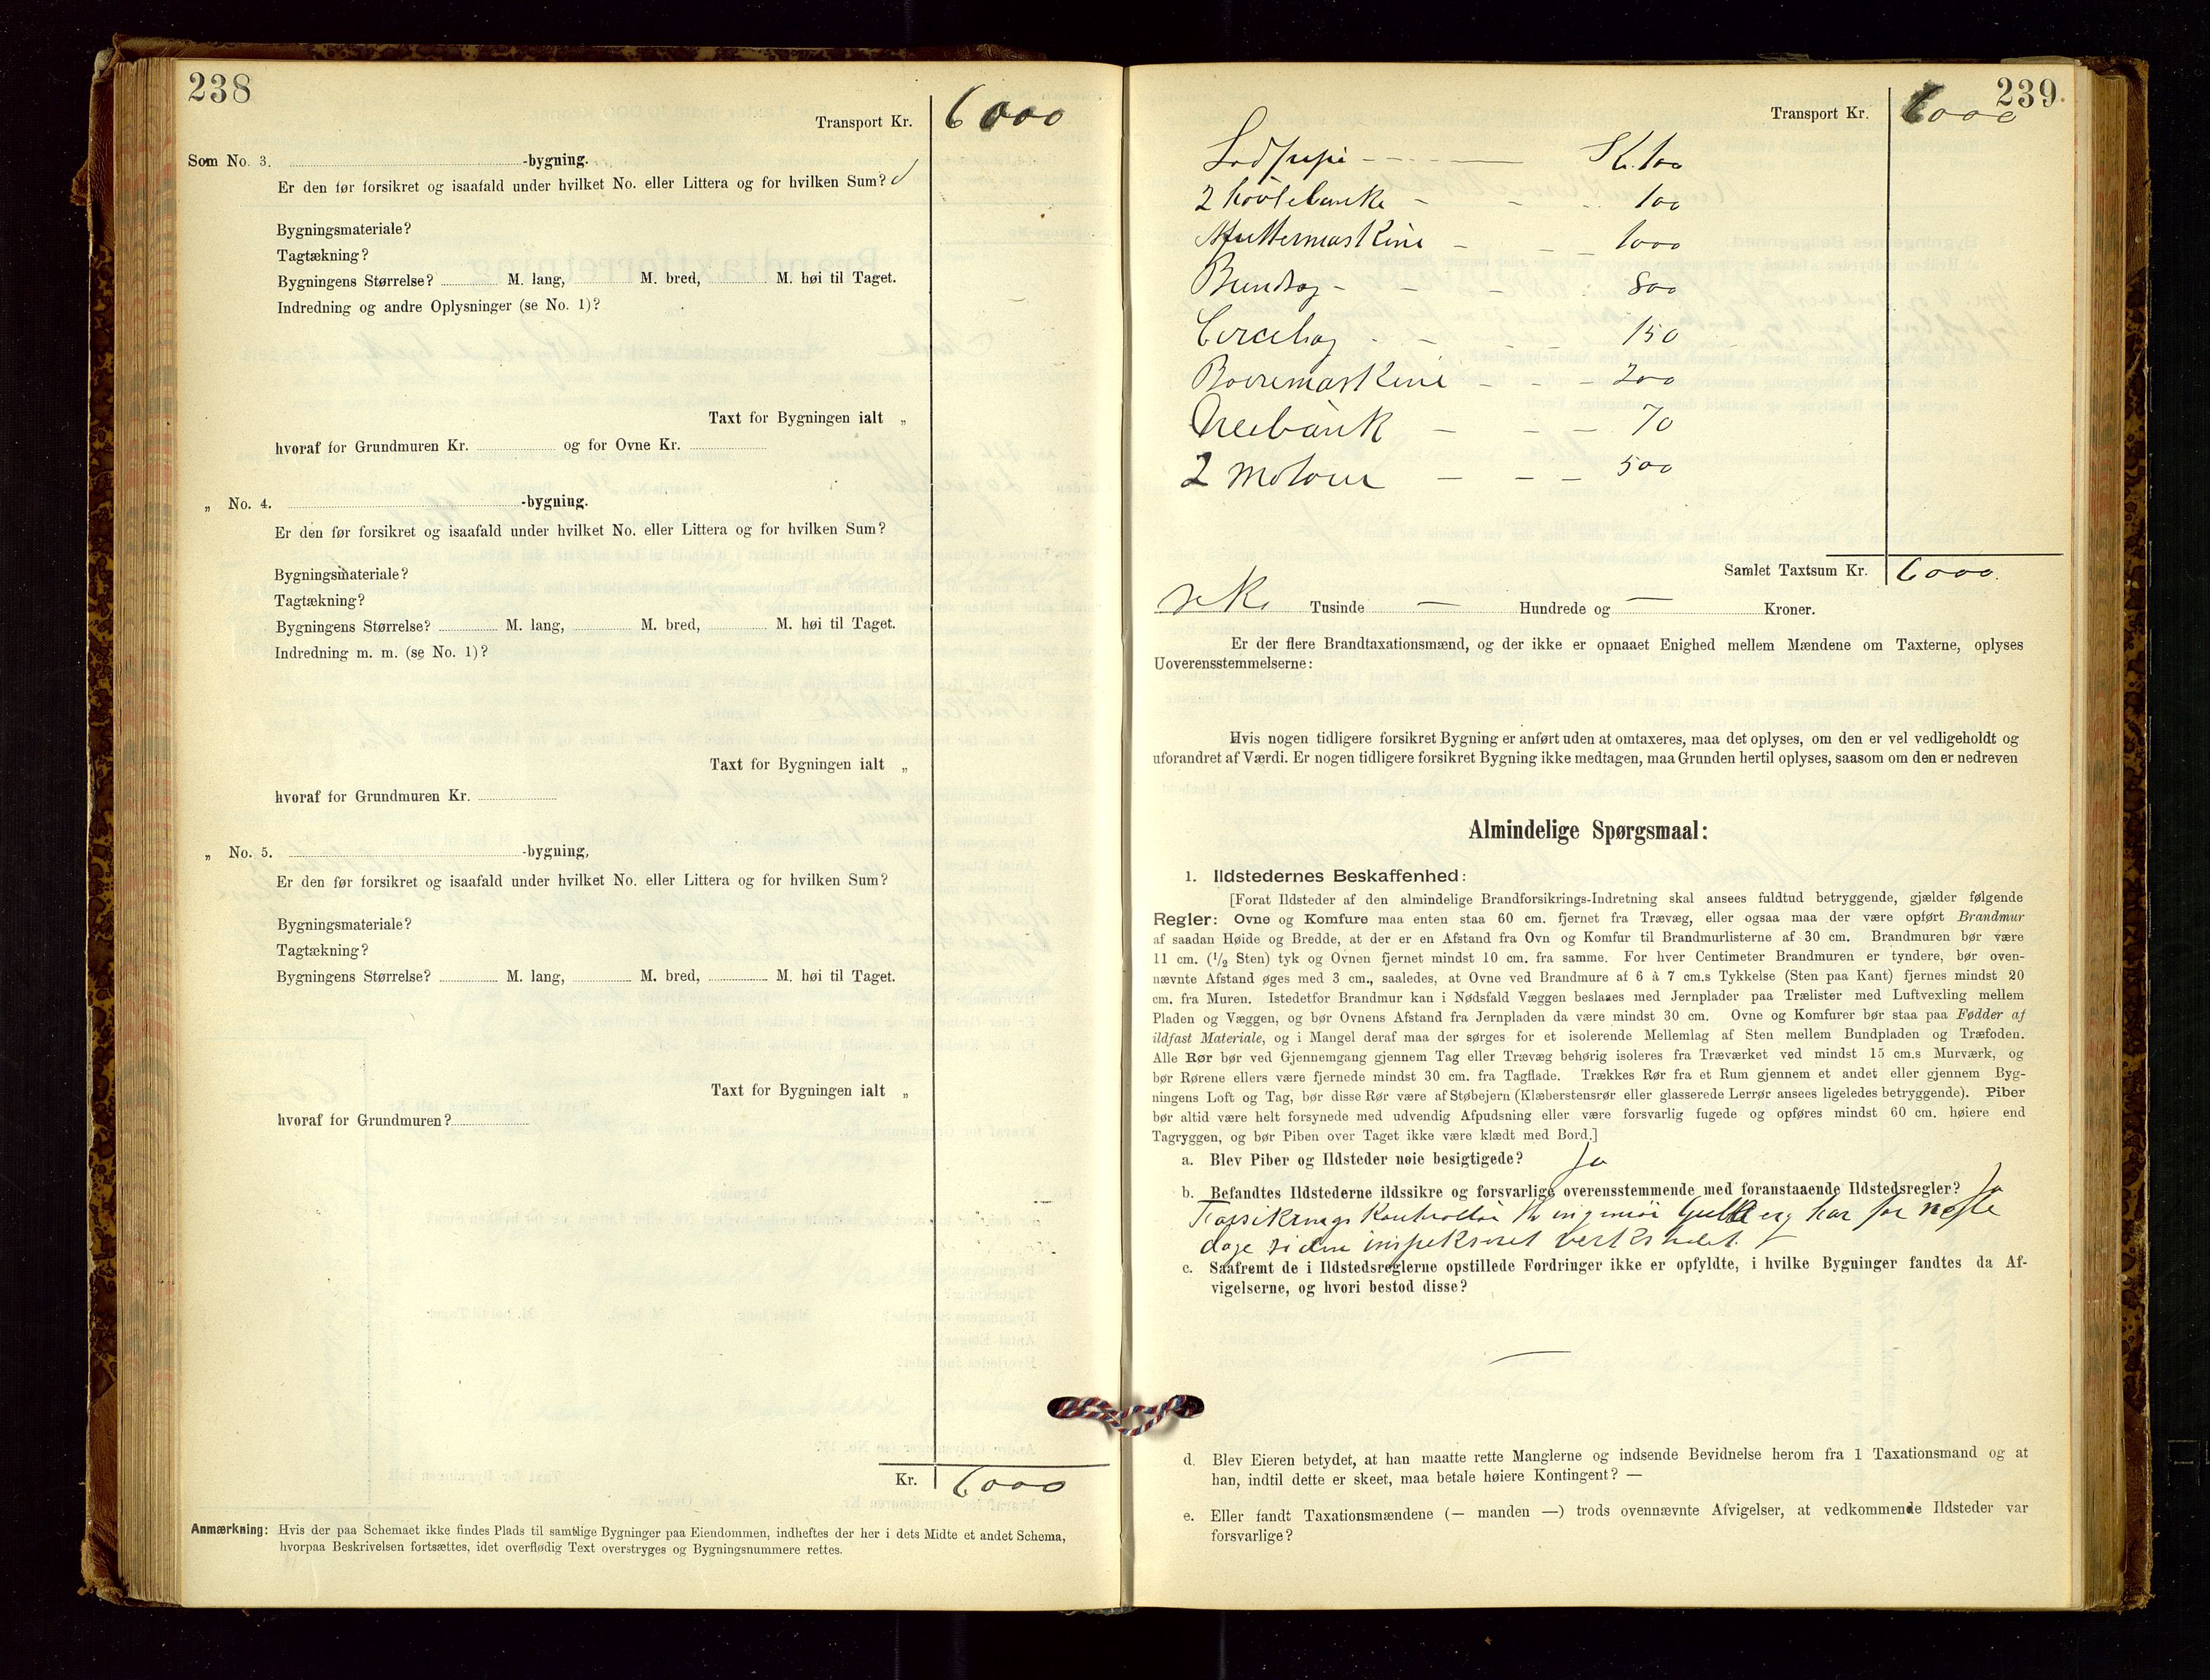 238
Transport Kr. 6000
Som No. 3. -bygning.
Er den før forsikret og isaafald under hvilket No. eller Littera og for hvilken Sum?
Bygningsmateriale?
Tagtækning?
Bygningens Størrelse? M. lang, M. bred, M. høi til Taget.
Indredning og andre Oplysninger (se No. 1)?
Taxt for Bygningen ialt „
hvoraf for Grundmuren Kr. og for Ovne Kr.
„ No. 4. -bygning.
Er den før forsikret og isaafald under hvilket No. eller Littera og for hvilken Sum?
Bygningsmateriale?
Tagtækning?
Bygningens Størrelse? M. lang, M. bred, M. høi til Taget.
Indredning m. m. (se No. 1)?
Taxt for Bygningen ialt „
hvoraf for Grundmuren Kr.
„ No. 5. -bygning,
Er den før forsikret og isaafald under hvilket No. eller Littera og for hvilken Sum?
Bygningsmateriale?
Tagtækning?
Bygningens Størrelse? M. lang, M. bred, M. høi til Taget.
Taxt for Bygningen ialt „
hvoraf for Grundmuren?
Kr. 6000
Anmærkning: Hvis der paa Schemaet ikke findes Plads til samtlige Bygninger paa Eiendommen, indheftes der her i dets Midte et andet Schema,
hvorpaa Beskrivelsen fortsættes, idet overflødig Text overstryges og Bygningsnummere rettes.
239.
Transport Kr. 6000
Kr. 100
2 hövlebenke - - - 100
maskine - - 1000
Bundsag - - - 800
150
Boremaskine - - - 200
70
2 motorer - - - 500
Samlet Taxtsum Kr. 6000.
seks Tusinde — Hundrede og — Kroner.
Er der flere Brandtaxationsmænd, og der ikke er opnaaet Enighed mellem Mændene om Taxterne, oplyses
Uoverensstemmelserne:
Hvis nogen tidligere forsikret Bygning er anført uden at omtaxeres, maa det oplyses, om den er vel vedligeholdt og
uforandret af Værdi. Er nogen tidligere forsikret Bygning ikke medtagen, maa Grunden hertil oplyses, saasom om den er nedreven
Almindelige Spørgsmaal:
1. Ildstedernes Beskaffenhed:
[Forat Ildsteder af den almindelige Brandforsikrings-Indretning skal ansees fuldtud betryggende, gjælder følgende
Regler: Ovne og Komfure maa enten staa 60 cm. fjernet fra Trævæg, eller ogsaa maa der være opført Brandmur
af saadan Høide og Bredde, at der er en Afstand fra Ovn og Komfur til Brandmurlisterne af 30 cm. Brandmuren bør være
11 cm. (1/2 Sten) tyk og Ovnen fjernet mindst 10 cm. fra samme. For hver Centimeter Brandmuren er tyndere, bør oven-
nævnte Afstand øges med 3 cm., saaledes, at Ovne ved Brandmure af 6 à 7 cm.s Tykkelse (Sten paa Kant) fjernes mindst 20
cm. fra Muren. Istedetfor Brandmur kan i Nødsfald Væggen beslaaes med Jernplader paa Trælister med Luftvexling mellem
Pladen og Væggen, og bør Ovnens Afstand fra Jernpladen da være mindst 30 cm. Ovne og Komfurer bør staa paa Fødder af
ildfast Materiale, og i Mangel deraf maa der sørges for et isolerende Mellemlag af Sten mellem Bundpladen og Træfoden.
Alle Rør bør ved Gjennemgang gjennem Tag eller Trævæg behørig isoleres fra Træværket ved mindst 15 cm.s Murværk, og
bør Rørene ellers være fjernede mindst 30 cm. fra Tagflade. Trækkes Rør fra et Rum gjennem et andet eller gjennem Byg-
ningens Loft og Tag, bør disse Rør være af Støbejern (Klæberstensrør eller glasserede Lerrør ansees ligeledes betryggende). Piber
bør altid være helt forsynede med udvendig Afpudsning eller være forsvarlig fugede og opføres mindst 60 cm. høiere end
Tagryggen, og bør Piben over Taget ikke være klædt med Bord.]
a. Blev Piber og Ildsteder nøie besigtigede? Ja
b. Befandtes Ildstederne ildssikre og forsvarlige overensstemmende med foranstaaende Ildstedsregler? Ja
har for
dage siden inspekseret verkstedet.
c. Saafremt de i Ildstedsreglerne opstillede Fordringer ikke er opfyldte, i hvilke Bygninger fandtes da Af-
vigelserne, og hvori bestod disse?
—
d. Blev Eieren betydet, at han maatte rette Manglerne og indsende Bevidnelse herom fra 1 Taxationsmand og at
han, indtil dette er skeet, maa betale høiere Kontingent? —
e. Eller fandt Taxationsmændene (— manden —) trods ovennævnte Afvigelser, at vedkommende Ildsteder var
forsvarlige?